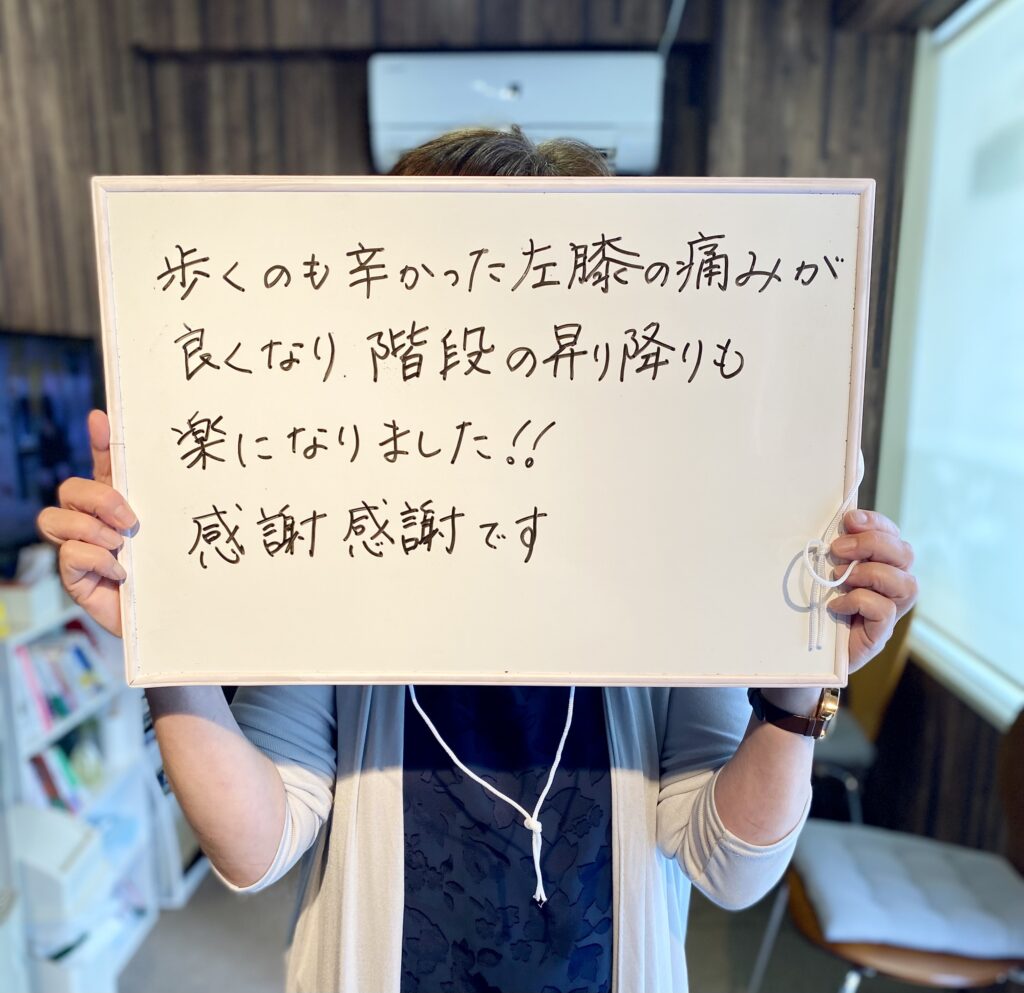 歩くのも辛かった左膝の痛みが
良くなり 階段の昇り降りも
楽になりました!!
感謝感謝です